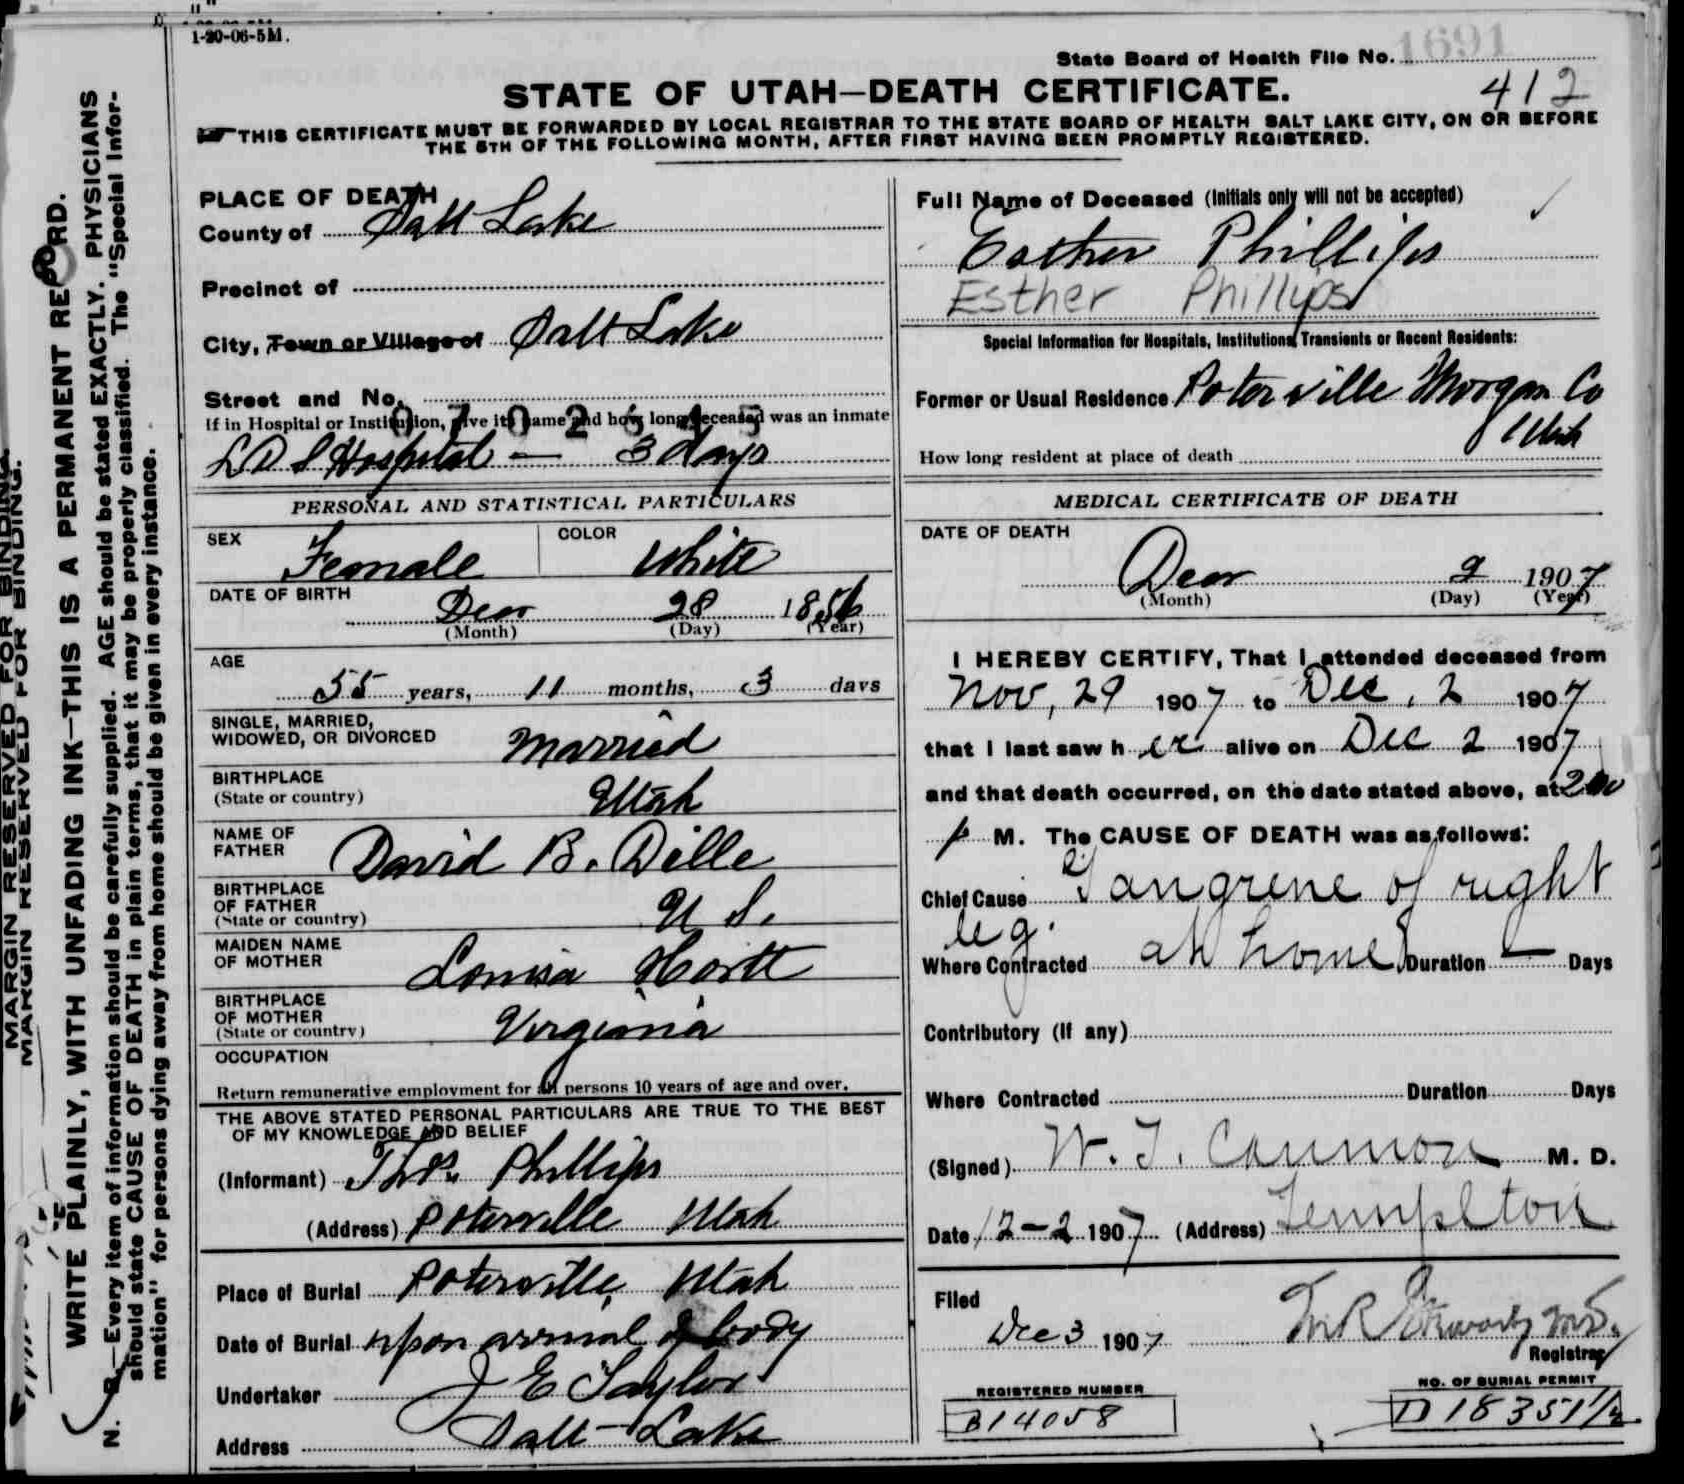 1-20-06-5M.
State Board of Health File No. 1691
STATE OF UTAH—DEATH CERTIFICATE. 412
THIS CERTIFICATE MUST BE FORWARDED BY LOCAL REGISTRAR TO THE STATE BOARD OF HEALTH SALT LAKE CITY, ON OR BEFORE
THE 5TH OF THE FOLLOWING MONTH, AFTER FIRST HAVING BEEN PROMPTLY REGISTERED.
MARGIN RESERVED FOR BINDING.
MARGIN RESERVED FOR BINDING.
WRITE PLAINLY, WITH UNFADING INK—THIS IS A PERMANENT RECORD.
N. B.—Every item of information should be carefully supplied. AGE should be stated EXACTLY. PHYSICIANS
should state CAUSE OF DEATH in plain terms, that it may be properly classified. The "Special Infor-
mation" for persons dying away from home should be given in every instance.
PLACE OF DEATH
County of Salt Lake
Precinct of
City, Town or Village of Salt Lake
Street and No.
If in Hospital or Institution, give its name and how long deceased was an inmate
L D S Hospital — 3 days
PERSONAL AND STATISTICAL PARTICULARS
SEX Female COLOR White
DATE OF BIRTH Dec 28 1851
(Month) (Day) (Year)
AGE
55 years, 11 months, 3 days
SINGLE, MARRIED,
WIDOWED, OR DIVORCED Married
BIRTHPLACE
(State or country) Utah
NAME OF
FATHER David B. Dille
BIRTHPLACE
OF FATHER
(State or country) U S.
MAIDEN NAME
OF MOTHER Louisa Hortt
BIRTHPLACE
OF MOTHER
(State or country) Virginia
OCCUPATION
Return remunerative employment for all persons 10 years of age and over.
THE ABOVE STATED PERSONAL PARTICULARS ARE TRUE TO THE BEST
OF MY KNOWLEDGE AND BELIEF
(Informant) Thos. Phillips
(Address) Poterville Utah
Place of Burial Poterville, Utah
Date of Burial upon arrival of body
Undertaker J E Taylor
Address Salt Lake
Full Name of Deceased (Initials only will not be accepted)
Esther Phillips
Esther Phillips
Special Information for Hospitals, Institutions, Transients or Recent Residents:
Former or Usual Residence Poterville Morgan Co
Utah
How long resident at place of death
MEDICAL CERTIFICATE OF DEATH
DATE OF DEATH
Dec 2 1907
(Month) (Day) (Year)
I HEREBY CERTIFY, That I attended deceased from
Nov, 29 1907 to Dec, 2 1907
that I last saw h er alive on Dec 2 1907
and that death occurred, on the date stated above, at 2 00
p M. The CAUSE OF DEATH was as follows:
Chief Cause Gangrene of right
leg.
Where Contracted at home Duration — Days
Contributory (If any)
Where Contracted Duration Days
(Signed) W. T. Cannon M. D.
Date 12-2 1907 (Address) Templton
Filed
Dec 3 1907
Registrar
REGISTERED NUMBER
B14058
NO. OF BURIAL PERMIT
D 18351 1/2